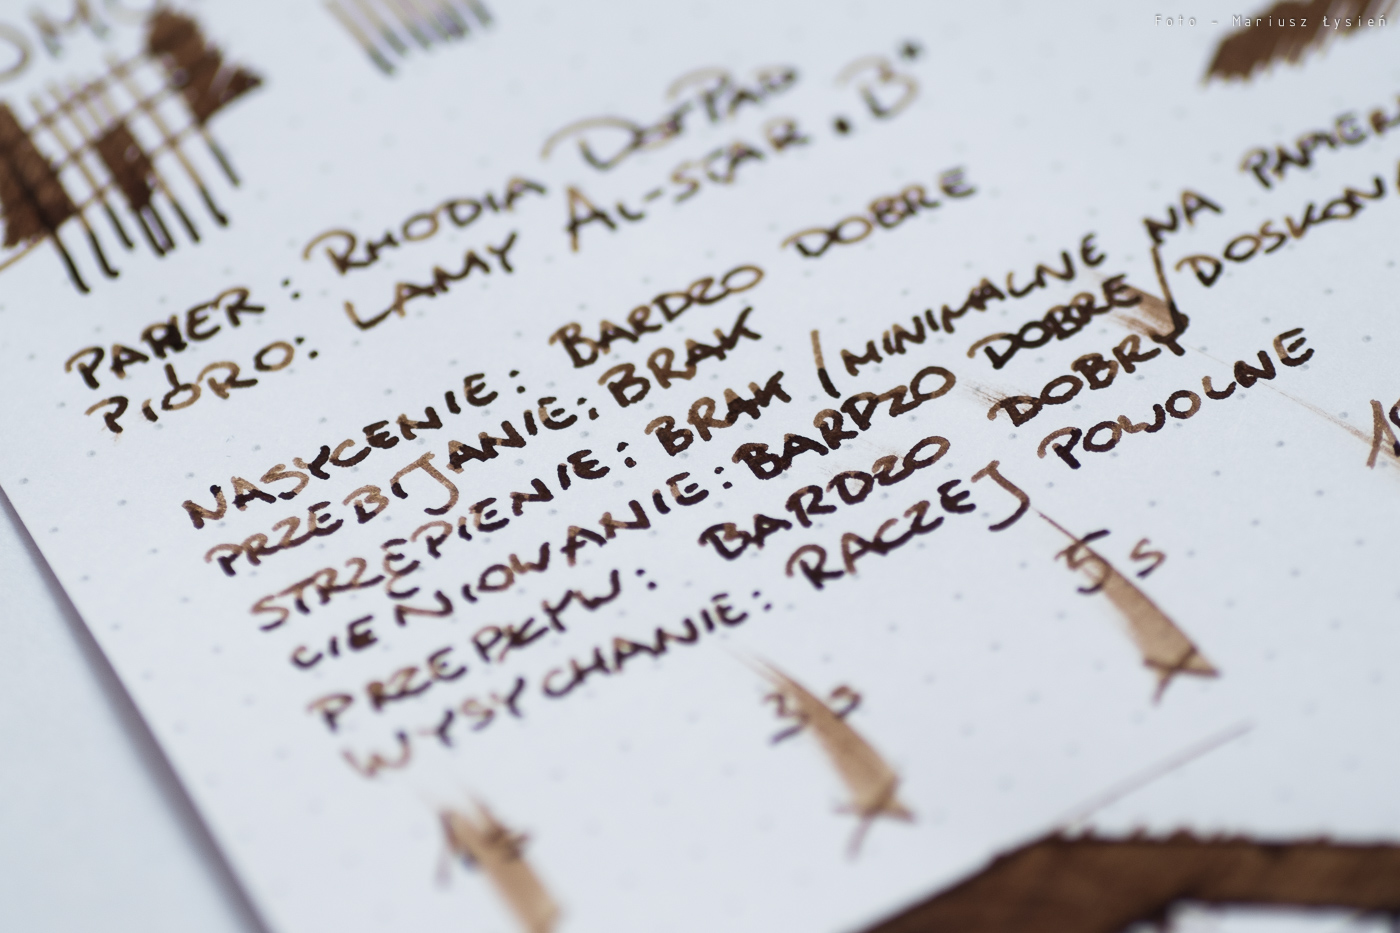 Foto - Mariusz Łysień
PAPIER: RHODIA DotPAD
PIÓRO: LAMY AL-STAR "B"
NASYCENIE: BARDZO DOBRE
PRZEBIJANIE: BRAK
STRZĘPIENIE: BRAK / MINIMALNE NA
CIENIOWANIE: BARDZO DOBRE /
PRZEPŁYW: BARDZO DOBRY
WYSYCHANIE: RACZEJ POWOLNE
1s
3s
5s